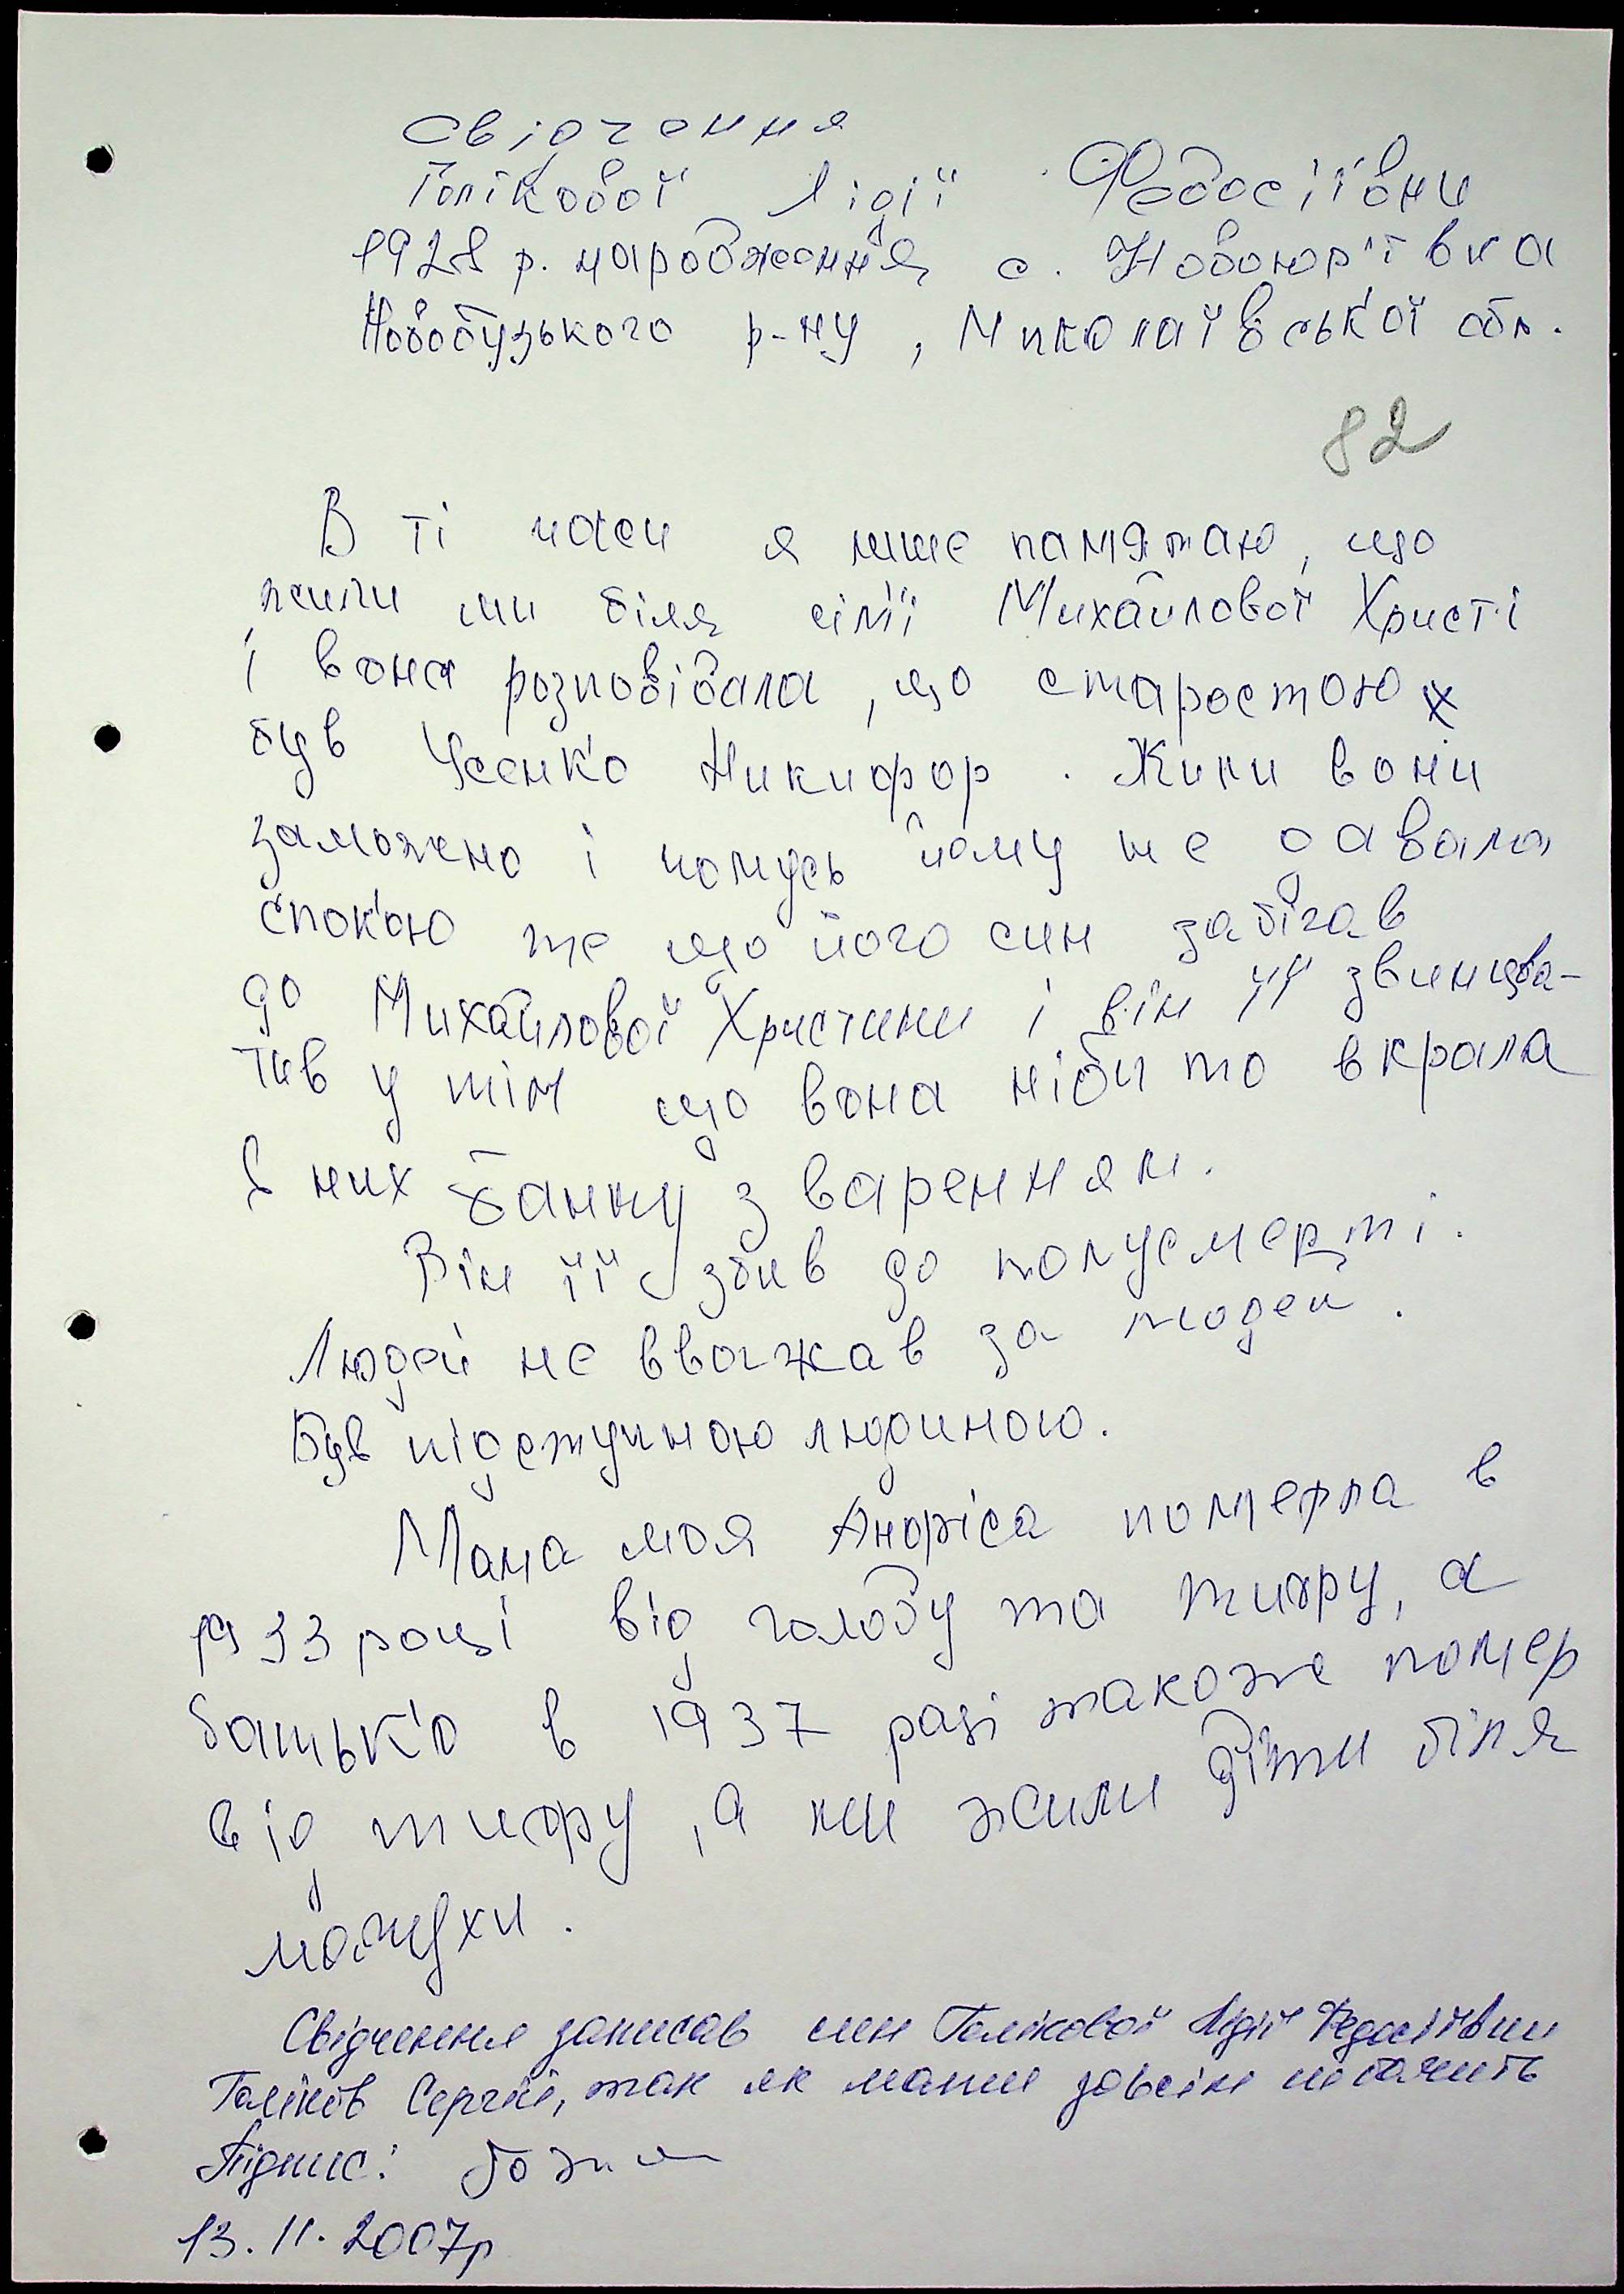 Свідчення
Голікової Лідії Федосіївни
1928 р. народження с. Новоюр'ївка
Новобузького р-ну, Миколаївської обл.
82
В ті часи я лише памятаю, що
жили ми біля сімї Михайлової Христі
і вона розповідала, що старостою
був Усенко Никифор. Жили вони
заможно і чомусь йому не давало
спокою те що його син забігав
до Михайлової Христини і він її звинува-
тив у тім що вона ніби то вкрала
в них банку з варенням.
Він її збив до полусмерті.
Людей не вважав за людей.
Був підступною людиною.
Мама моя Анфіса померла в
1933 році від голоду та тифу, а
батько в 1937 році також помер
від тифу, а ми жили діти біля
мачухи.
Свідчення записав син Голікової Лідії Федосіївни
Голіков Сергій, так як мати зовсім не бачить
Підпис:
13.11.2007р